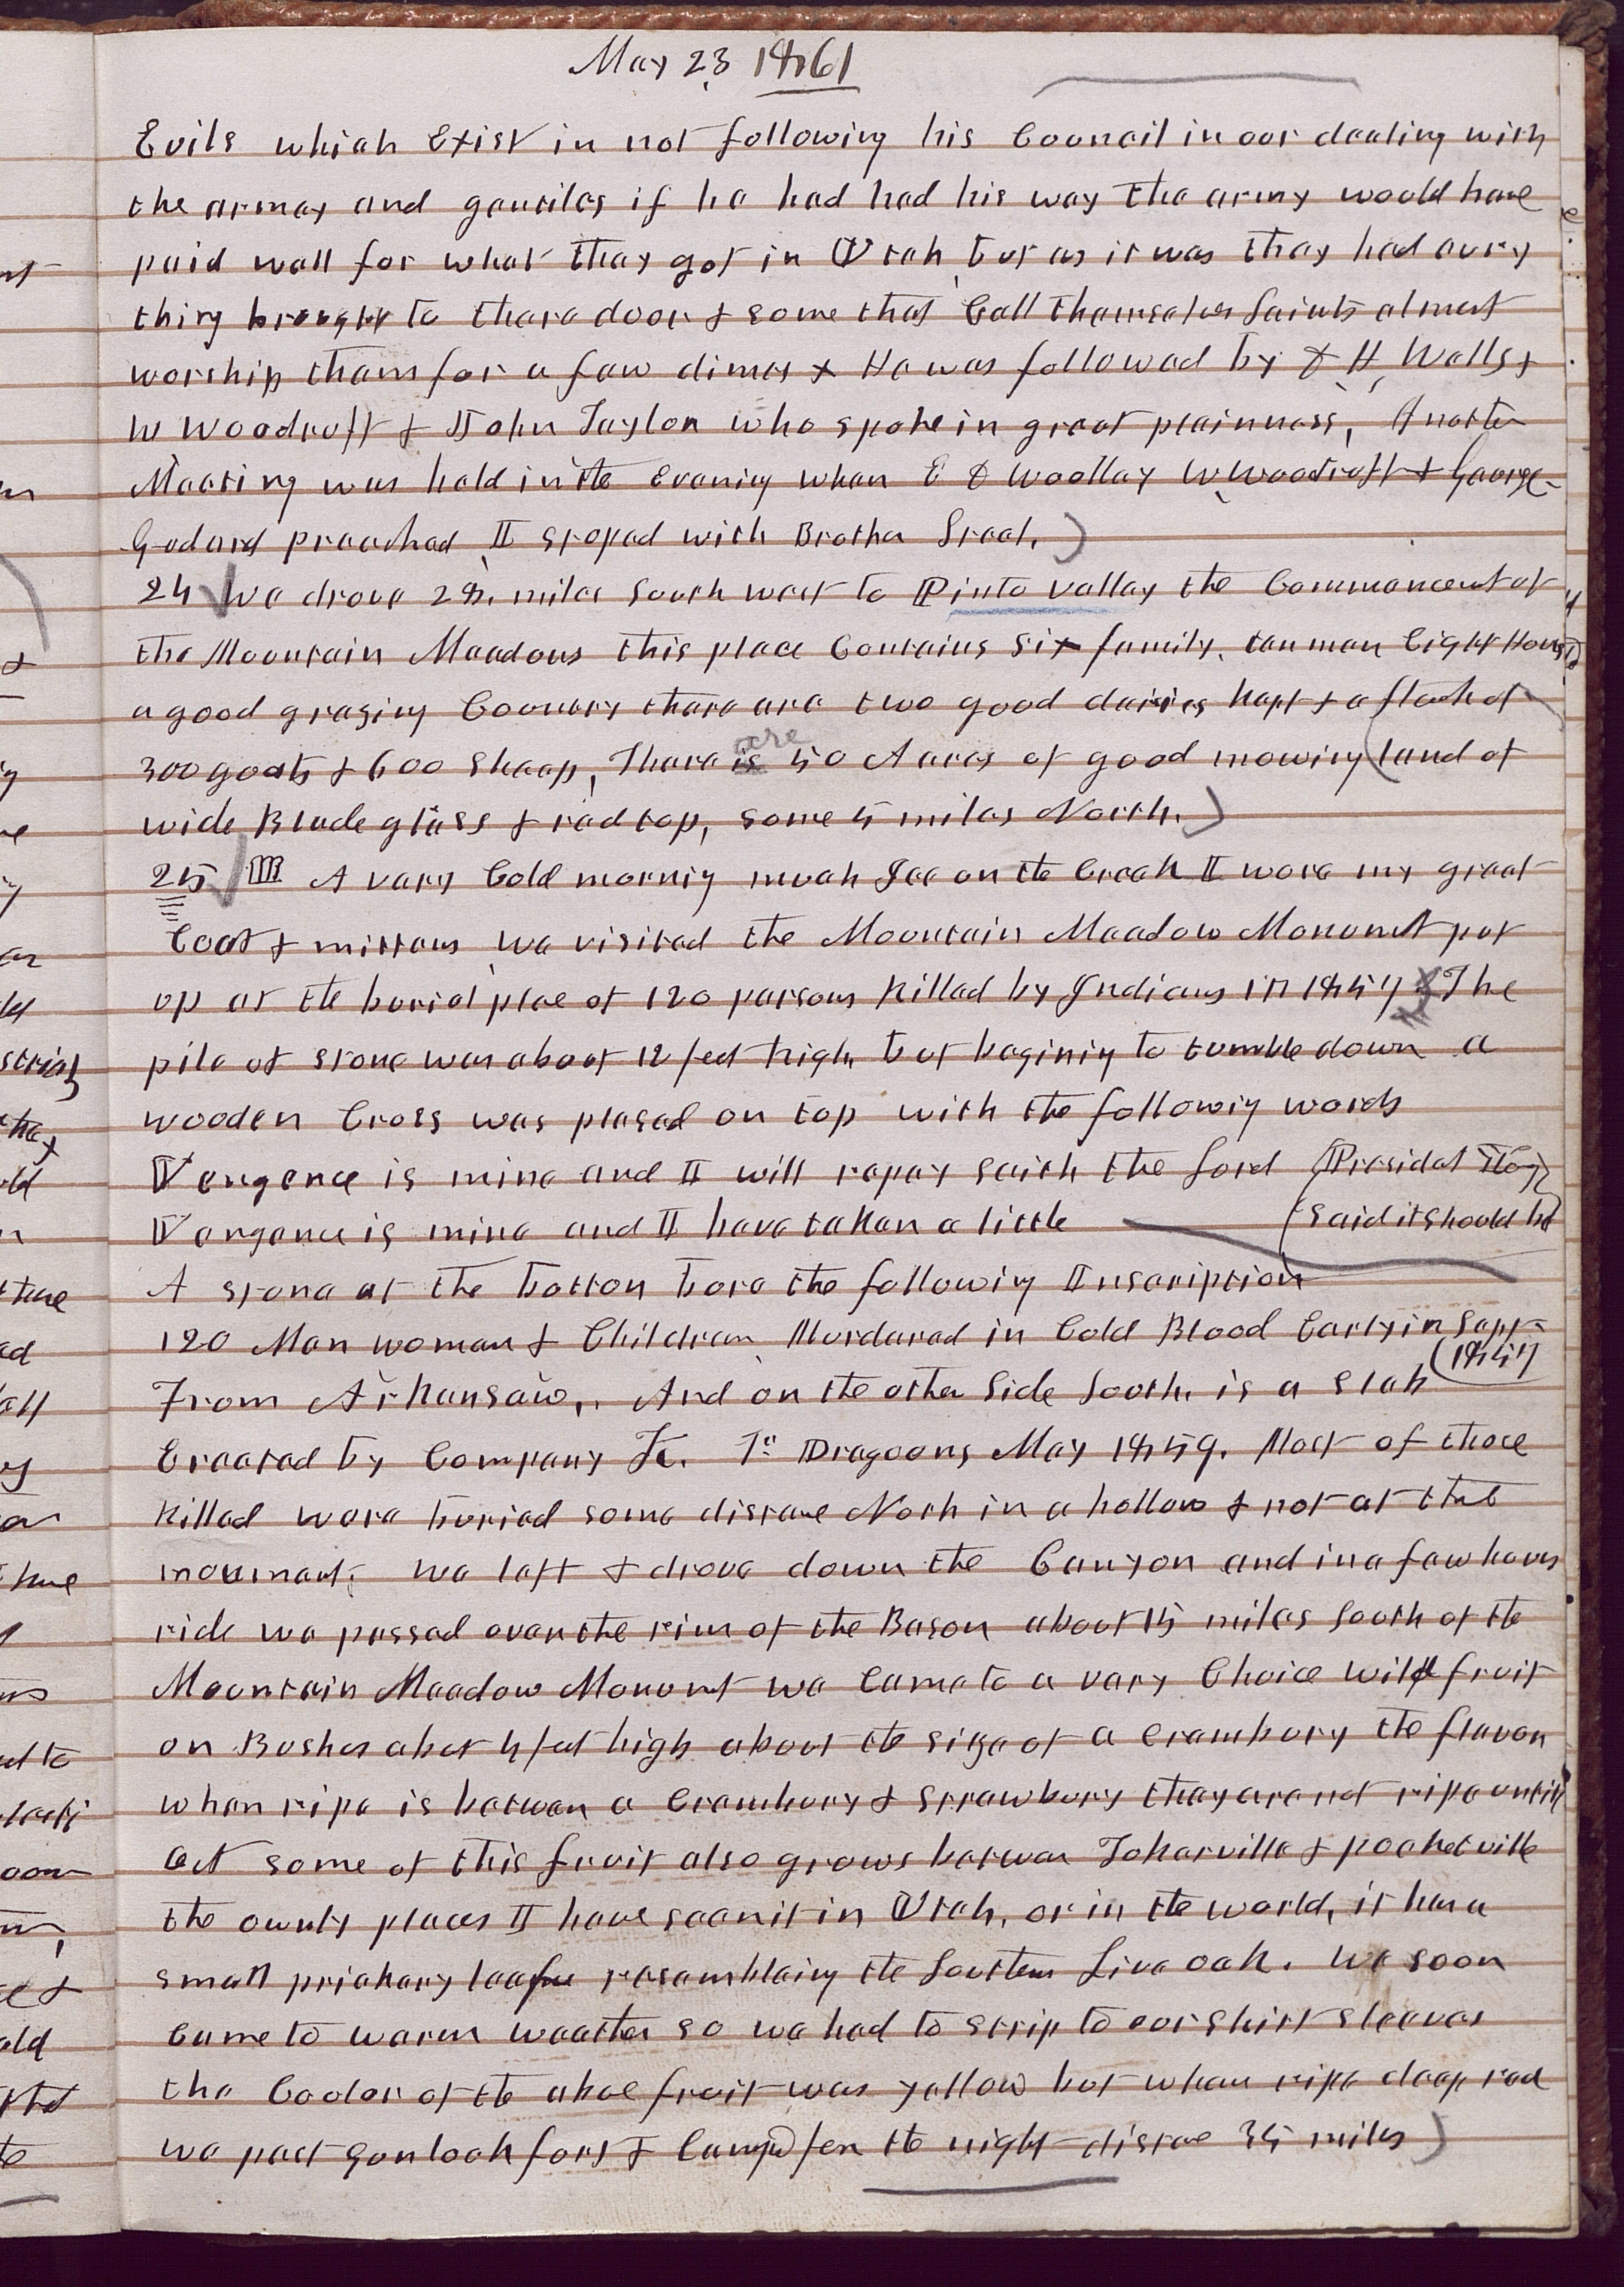 May 23 1861
Evils which Exist in not following his Council in our dealing with
the armey and gentiles if he had had his way the army would have
paid well for what they got in Utah but as it was they had evry
thing brought to there door & some that Call themselves Saints almost
worship them for a few dimes & He was followed by D H, Wells,
W Woodruff & John Taylor who spoke in great plainness, Another
Meeting was held in the Evening when E D Woolley W Woodruff & George
Godard preached I stoped with Brother Steel,
24 We drove 28. miles South west to Pinto valley the Commencent of
the Mountain Meadows this place Contains six family, ten men Eight Houses
a good grazing Country there are two good dairies kept & a flock of
300 goats & 600 Sheep, There is are 50 Acres of good mowing land of
wide Blade glass & red top, some 5 miles North.
25 A very Cold mornig much Ice on the Creek I wore my great
Coat & mittens we visited the Mountain Meadow Monumet put
up at the burial place of 120 persons killed by Indians in 1857 The
pile of stone was about 12 feet high but beginig to tumble down a
wooden Cross was plased on top with the followig words
Vengence is mine and I will repay saith the Lord Presidet Young
Vengence is mine and I have taken a little said it should be
A stone at the botton bore the followig Inscription
120 Men women & Children Murdered in Cold Blood Early in Sept
1857
From Arkansaw,. And on the other Side South. is a slab
Erected by Company K. 1st Dragoons May 1859. Most of those
killed were buried some distance North in a hollow & not at the
monument. we left & drove down the Canyon and in a few hours
ride we passed over the rim of the Bason about 15 miles South of the
Mountain Meadow Monumet we Came to a very Choice wild fruit
on Bushes about 4 feet high about the size of a Crambury the flavor
when ripe is betwen a Crambury & Strawbury they are not ripe until
Oct some of this fruit also grows betwen Tokerville & pocketville
the ownly places I have seen it in Utah, or in the world, it has a
small prickery leaf resemblaing the Southern Live oak. We soon
Came to warm weather so we had to strip to our shirt sleeves
the Cooler of the above fruit was yellow but when ripe deep red
we past gunlock fort & Camped for the night distance 35 miles